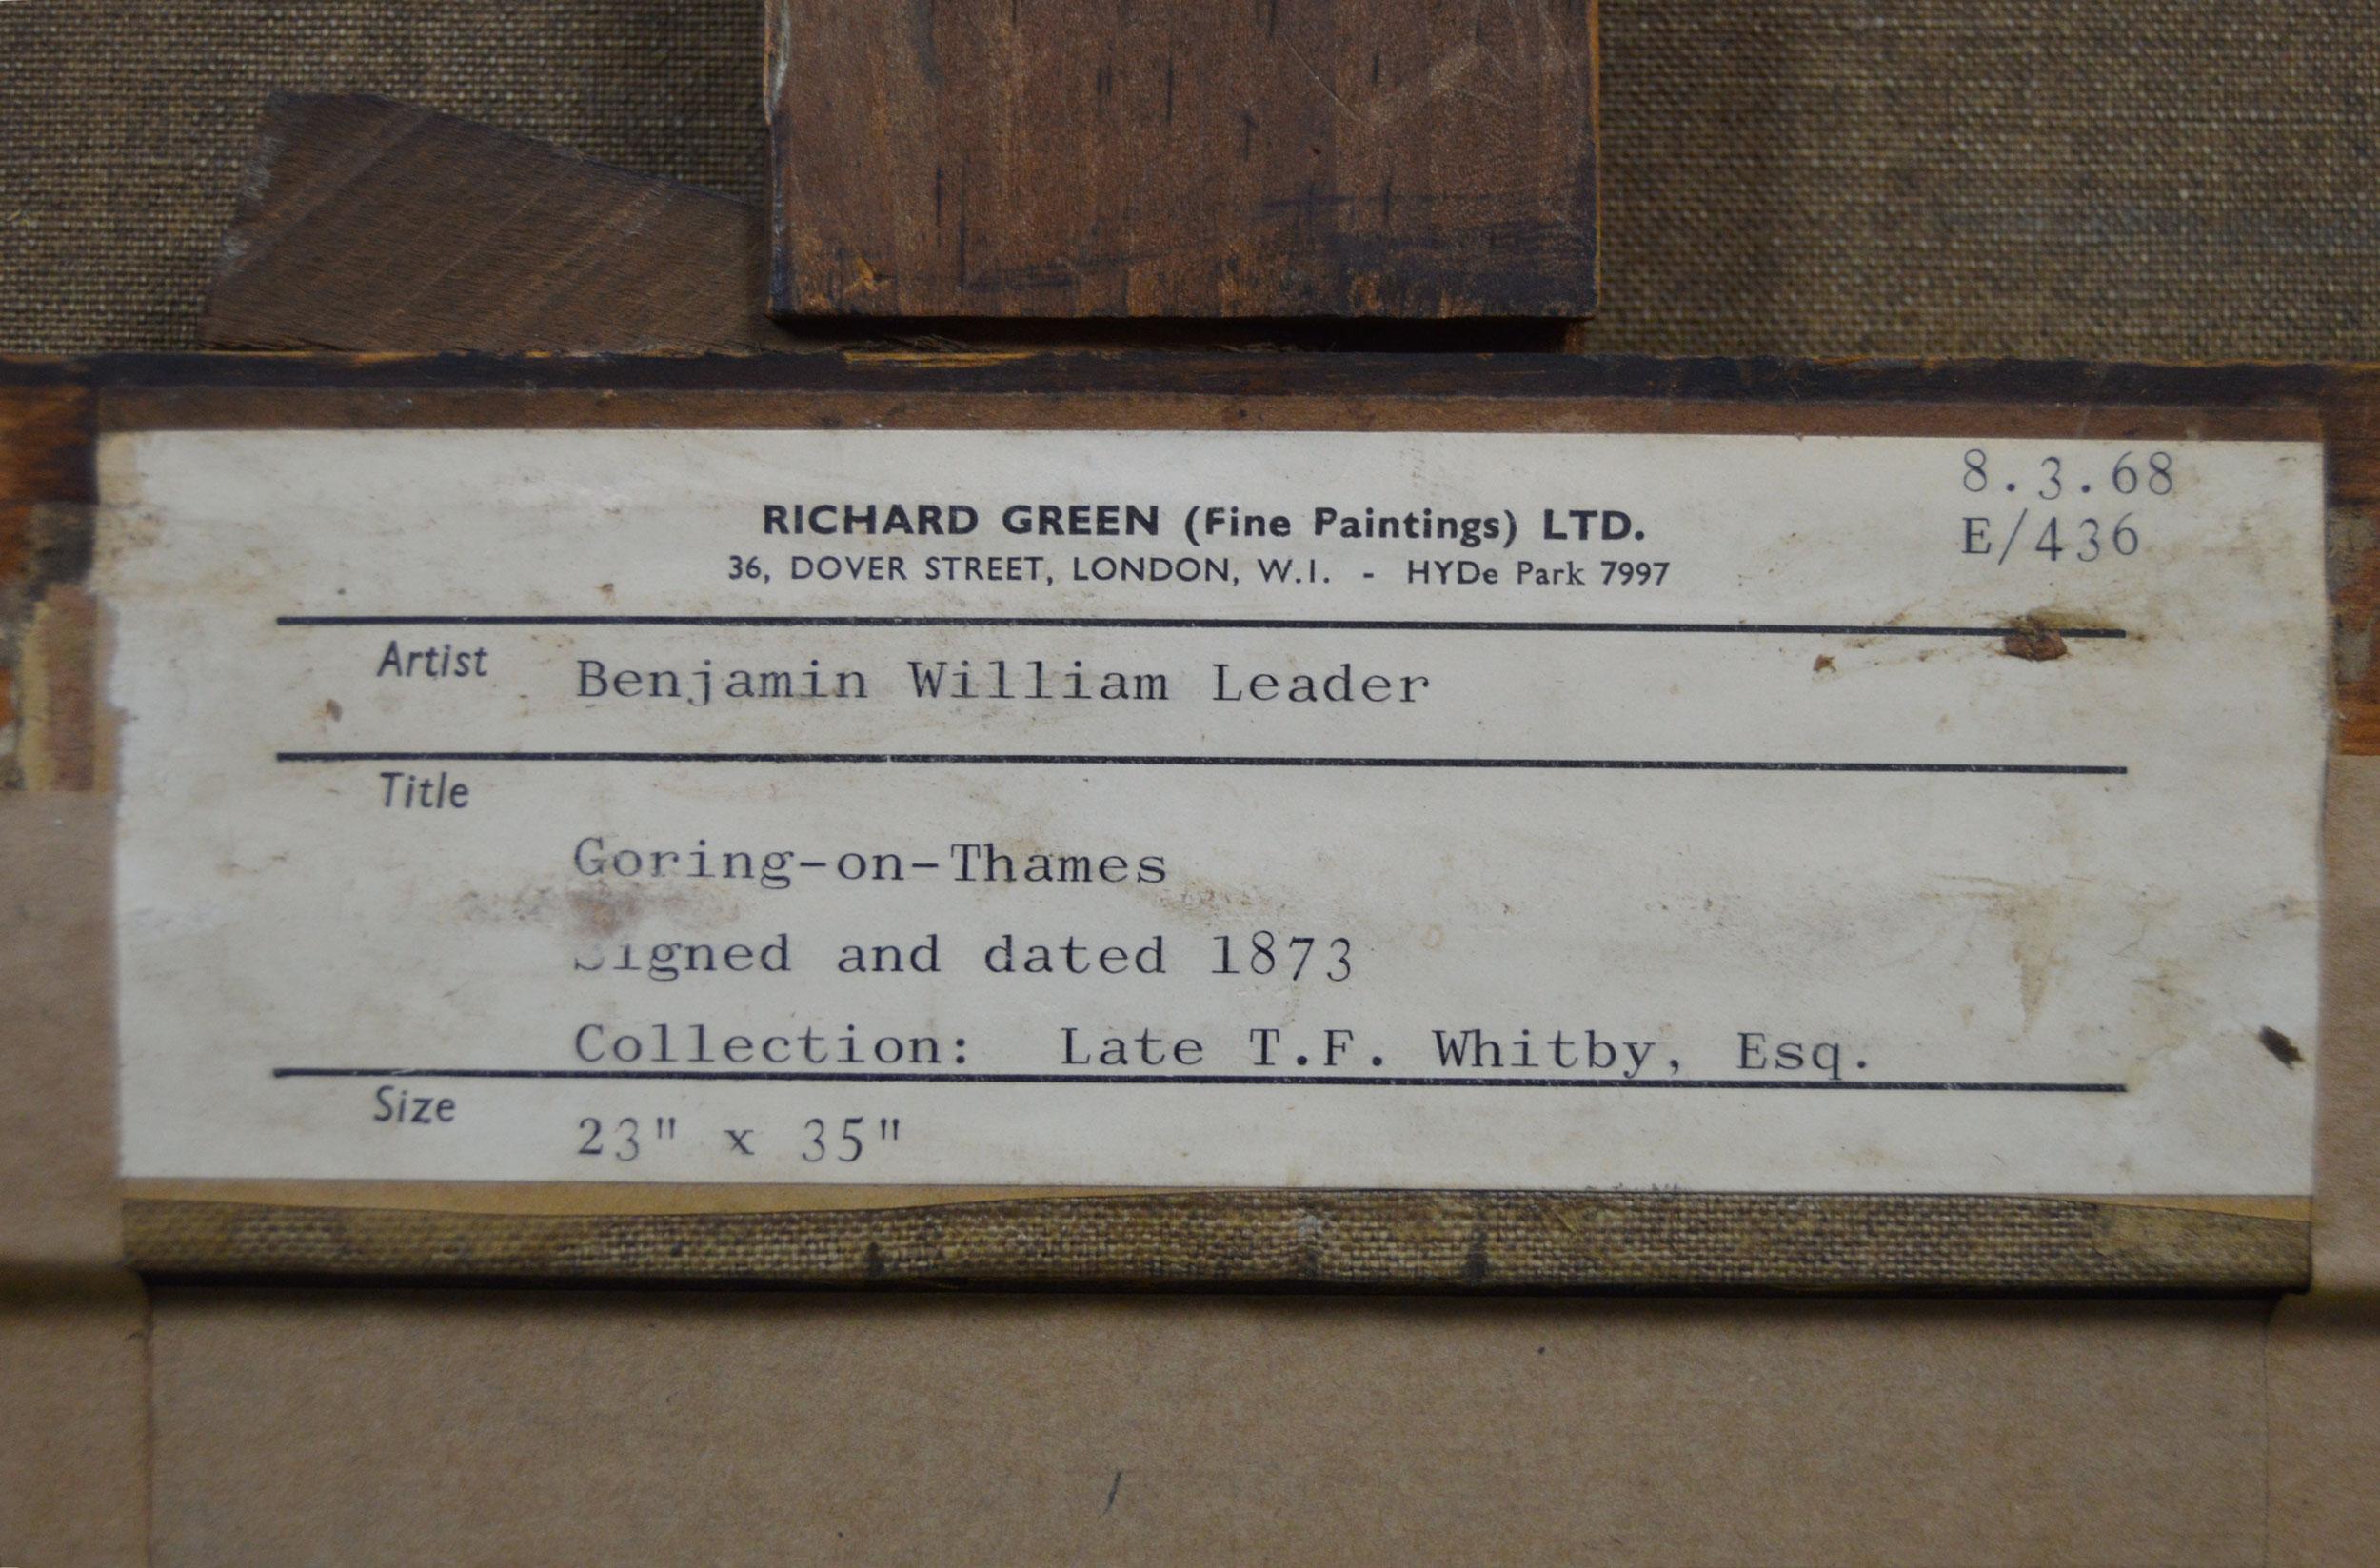 8.3.68
RICHARD GREEN (Fine Paintings) LTD.
E/436
36, DOVER STREET, LONDON, W.I. - HYDe Park 7997
Artist Benjamin William Leader
Title
Goring-on-Thames
Signed and dated 1873
Collection: Late T.F. Whitby, Esq.
Size 23" x 35"